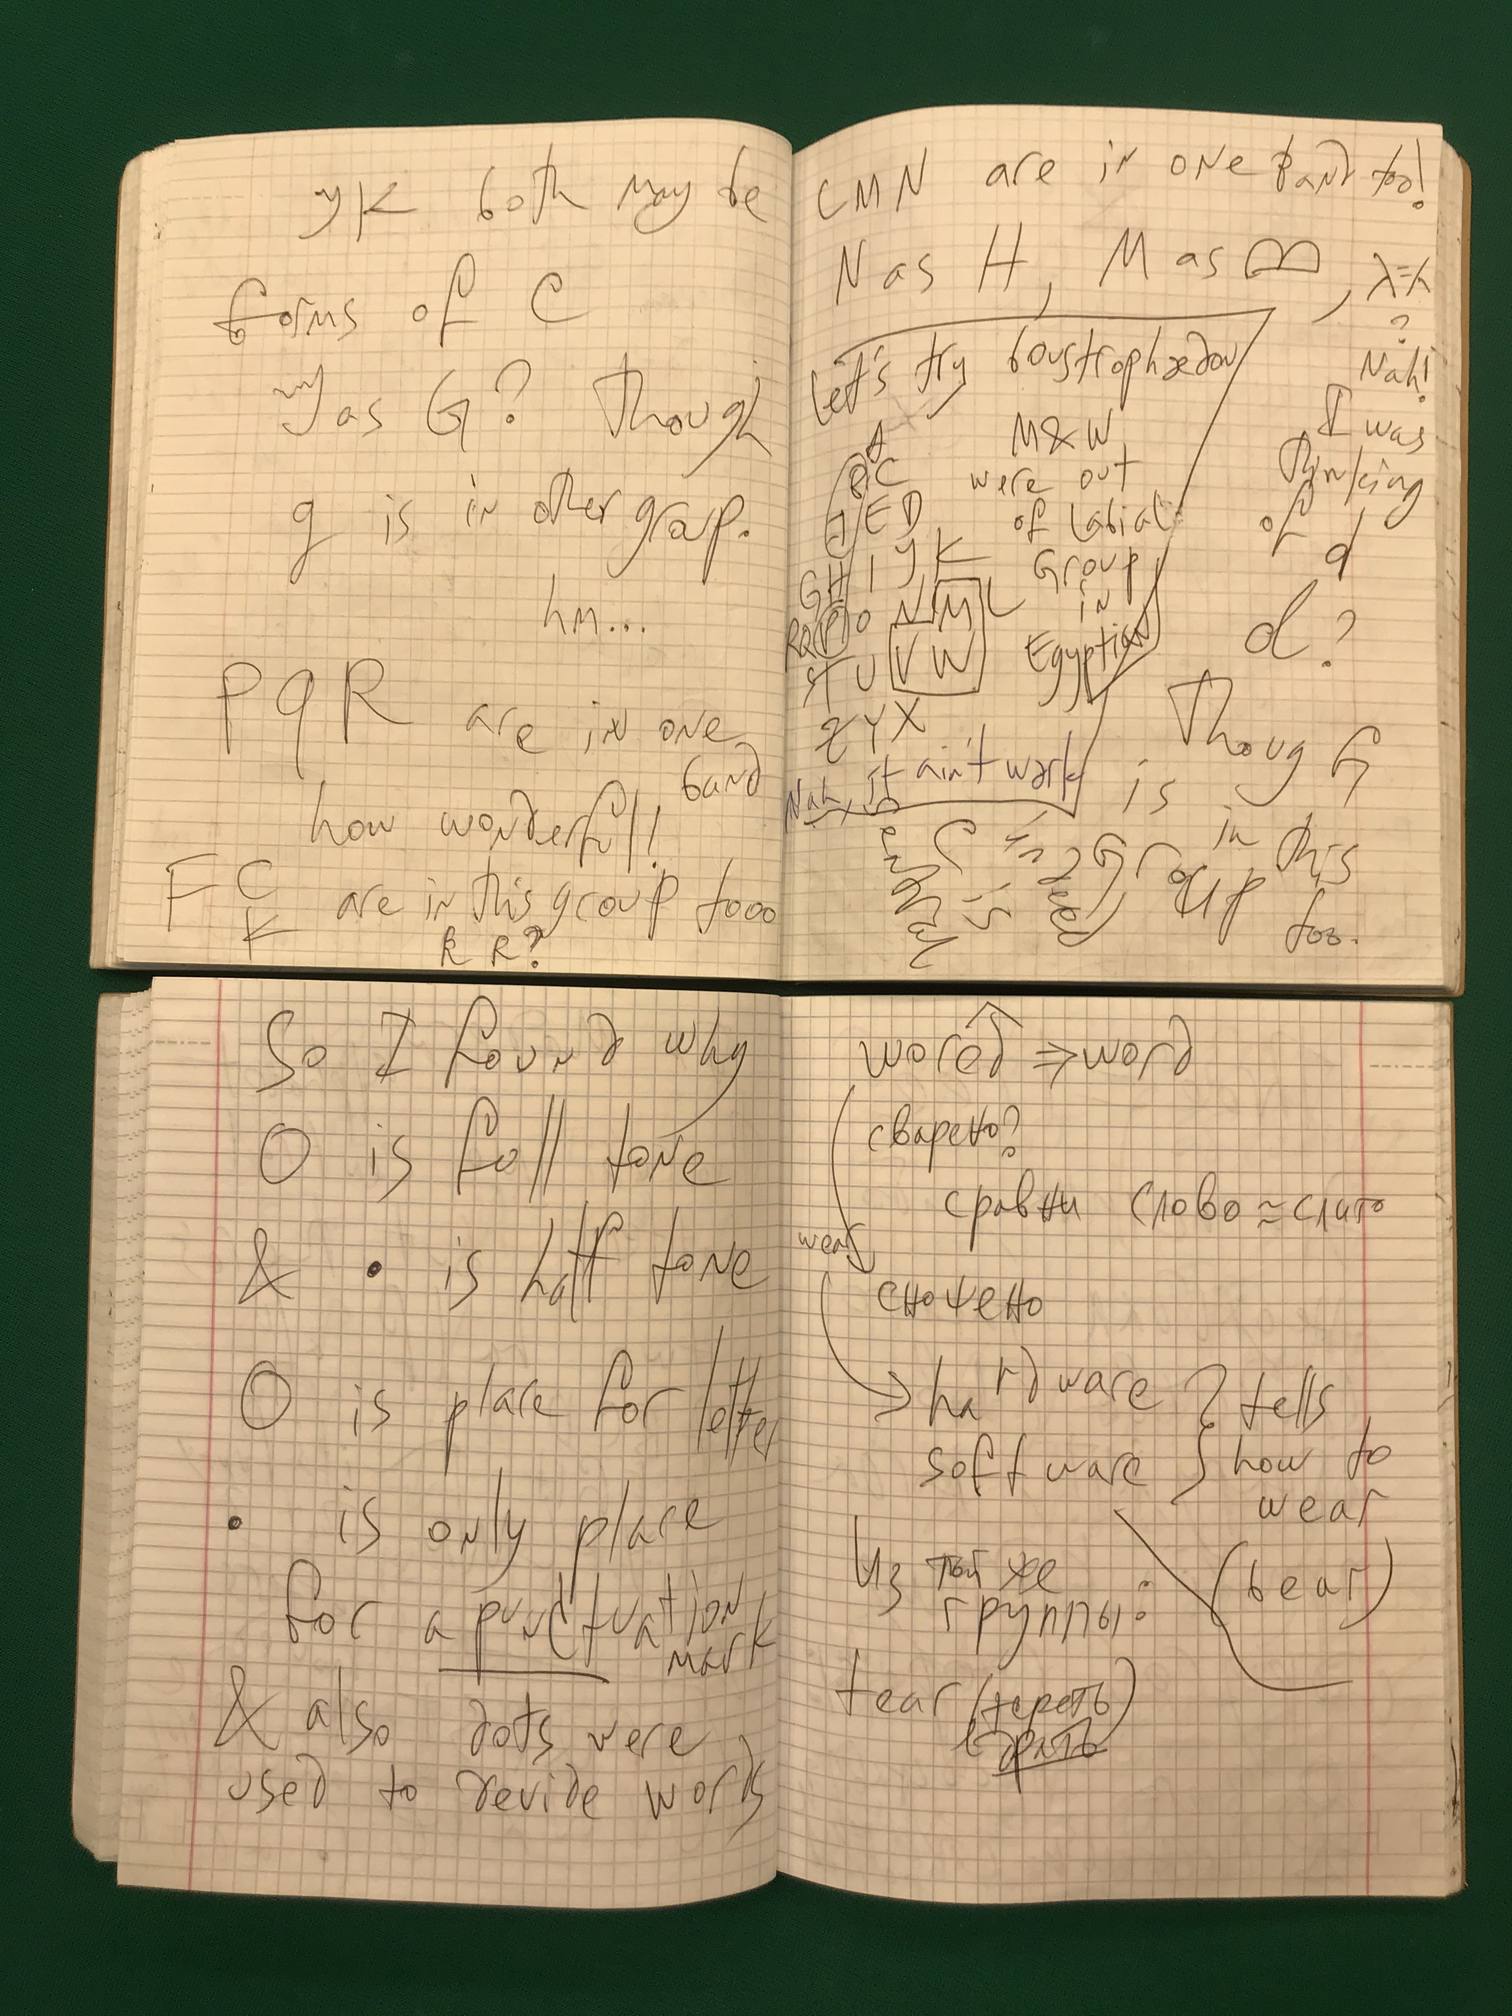 yK both may be
forms of C
y as G? Though
g is in other group.
hm...
P q R are in one
band
how wonderfull!
F C K are in this group tooo
R R?
LMN are in one band too!
N as H, M as
λ=h
?
Nah!
I was
thinking
of d
d?
Thoug G
is in this
Group too.
Let's try boustrophædon
A
BC
FED
GHIYK
RQPONML
STUVW
ZYX
M&W
were out
of Labial
Group
in
Egyptian
Nah, it ain't work
C is
indeed
So I found why
O is full tone
& • is half tone
O is place for letter
• is only place
for a punctuation
mark
& also dots were
used to devide words
wored ⇒ word
сварено?
сравни слово ≈ слито
wear
сножено
→ hardware } tells
software } how to
wear
Из той же
группы:
(bear)
tear (тереть)
драть